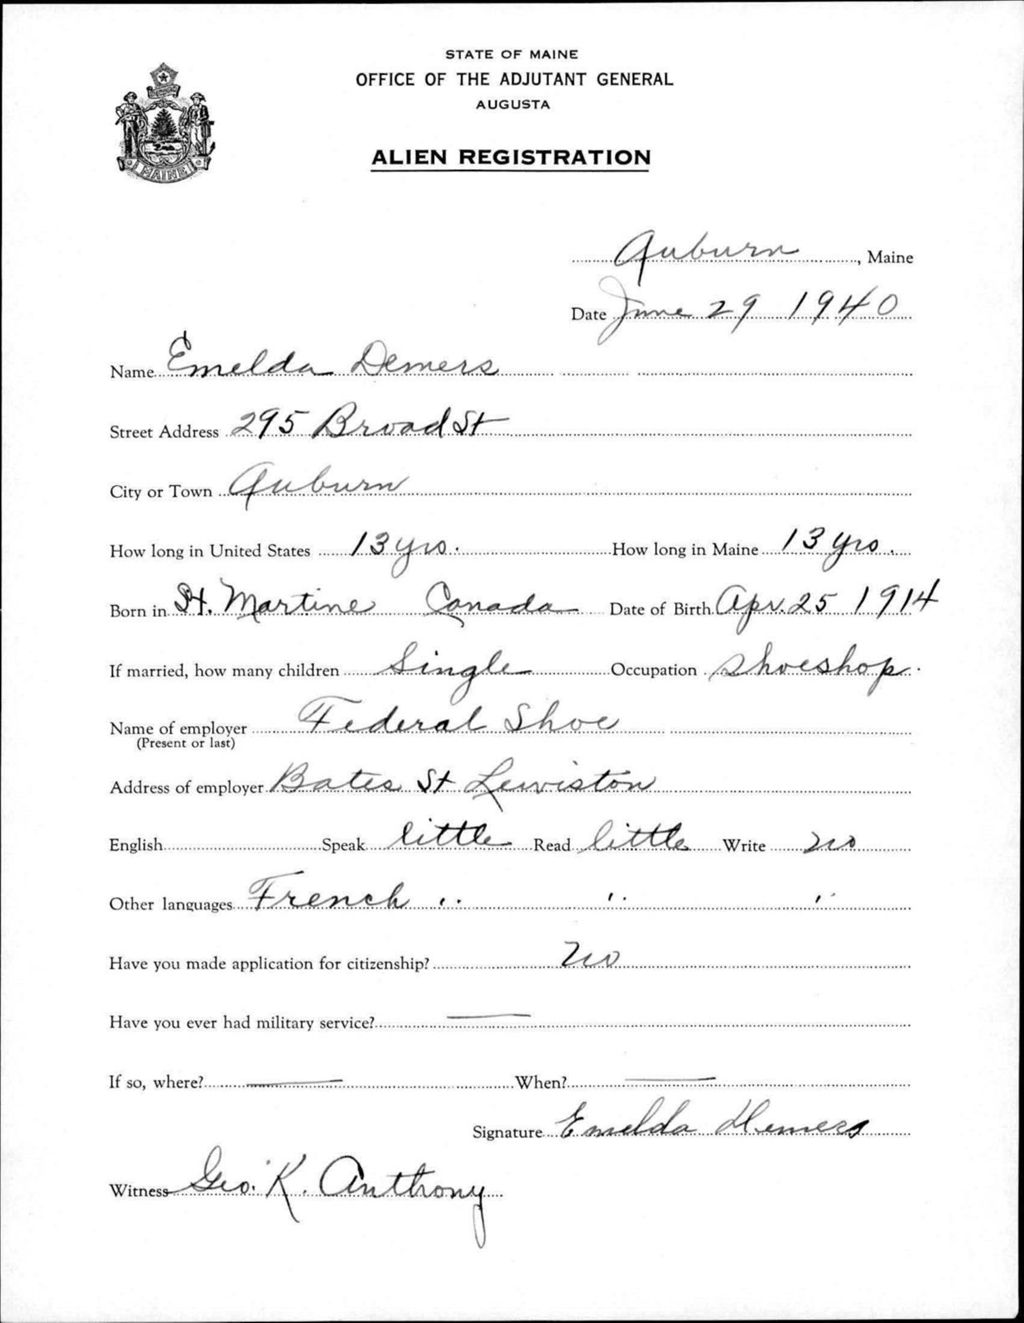 STATE OF MAINE
OFFICE OF THE ADJUTANT GENERAL
AUGUSTA
ALIEN REGISTRATION
MAINE
Auburn, Maine
Date June 29 1940
Name Emelda Demers
Street Address 295 Broad St
City or Town Auburn
How long in United States 13 yrs. How long in Maine 13 yrs.
Born in St. Martine Canada Date of Birth Apr. 25 1914
If married, how many children Single Occupation Shoeshop.
Name of employer Federal Shoe
(Present or last)
Address of employer Bates St Lewiston
English Speak little Read little Write no
Other languages French " " "
Have you made application for citizenship? no
Have you ever had military service? —
If so, where? — When? —
Signature Emelda Demers
Witness Geo. K. Anthony